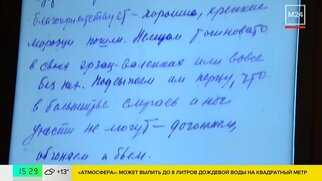 благоприятствует – хорошие, крепкие
морозы пошли. Немцам тошновато
в своих эрзац-валенках или вовсе
без них. Подсыпаем им перцу, что
в большинстве смерзся и нос
унести не могут – догоняем,
обгоняем и бьем.
М24
15:29
+13°
«АТМОСФЕРА»: МОЖЕТ ВЫЛИТЬ ДО 8 ЛИТРОВ ДОЖДЕВОЙ ВОДЫ НА КВАДРАТНЫЙ МЕТР